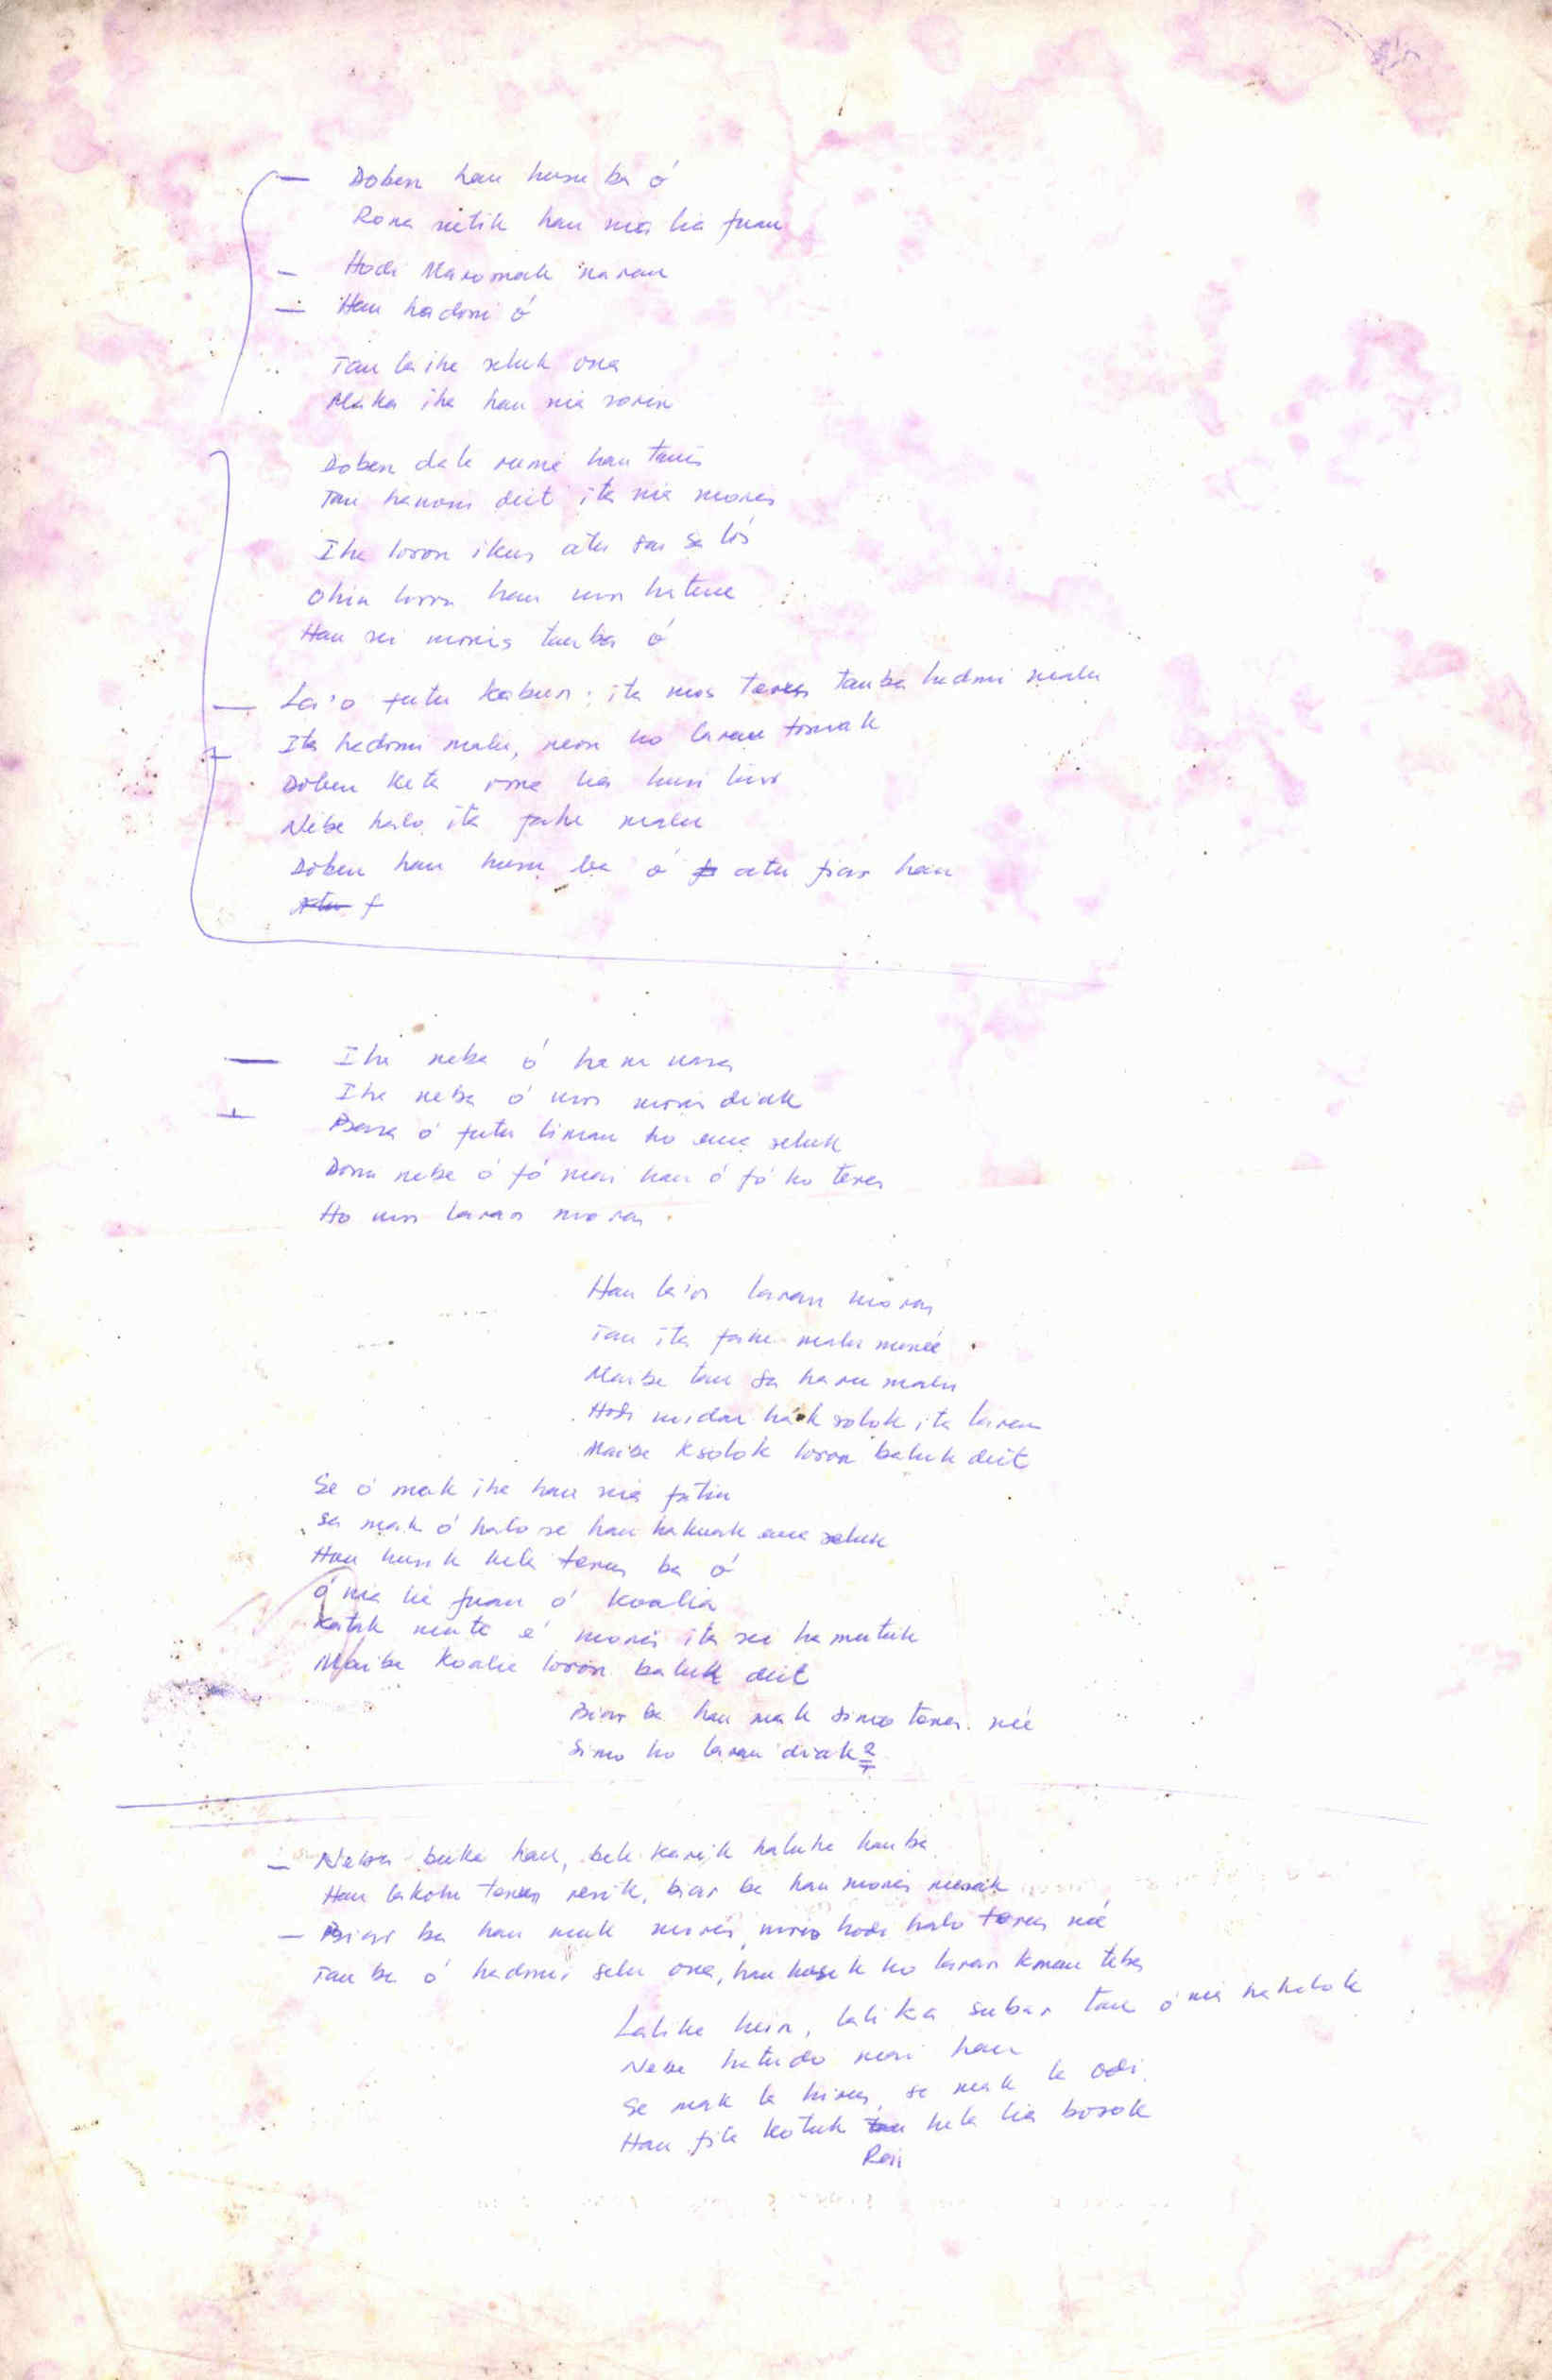 — Doben hau husu ba ó
Rona netik hau nia lia fuan
— Hodi Maromak naran
— Hau hadomi ó
Tau la iha seluk ona
Maka iha hau nia sorin
Doben dale rume hau tanis
Tau hanoin deit ita nia moris
Iha loron ikus atu sai sa lós
Ohin loron hau mos hatene
Hau sei moris tau ba ó
— La'o futu kabun: ita mos terus tauba hadomi malu
— Ita hadomi malu, neon ho laran tomak
Doben keta rona lia husi liur
Nebe halo ita fahe malu
Doben hau husu ba ó atu fiar hau
— Iha neba ó hanu usa
Iha neba ó mos moris diak
Basa ó futu liman ho ema seluk
Domi nebe ó fó mai hau ó fó ho terus
Ho mos laran moras
Hau la'os laran moras
Tau ita fahe malu nunee
Maibe tau sa haru malu
Hodi midar haksolok ita laran
Maibe ksolok loron baluk deit
Se ó mak iha hau nia fatin
sa mak ó halo se hau hakuak ema seluk
Hau husik hela terus ba ó
ó nia lia fuan ó koalia
Katak mate é moris ita sei hamutuk
Maibe koalia loron baluk deit
Biar ba hau mak simo terus née
Simo ho laran diak?
— Nebe buka hau, bele karik haluha hau ba
Hau lakohi terus resik, biar ba hau moris mesak
— Biar ba hau mak moris, moris hodi halo terus née
Tau ba ó hadomi selu ona, hau husik ho laran kmaan tebes
Lalika hein, lalika subar tau ó nia hahalok
Nebe hatudo mai hau
Se mak la hirus, se mak la odi
Hau fila kotuk tau hela lia bosok
Rai